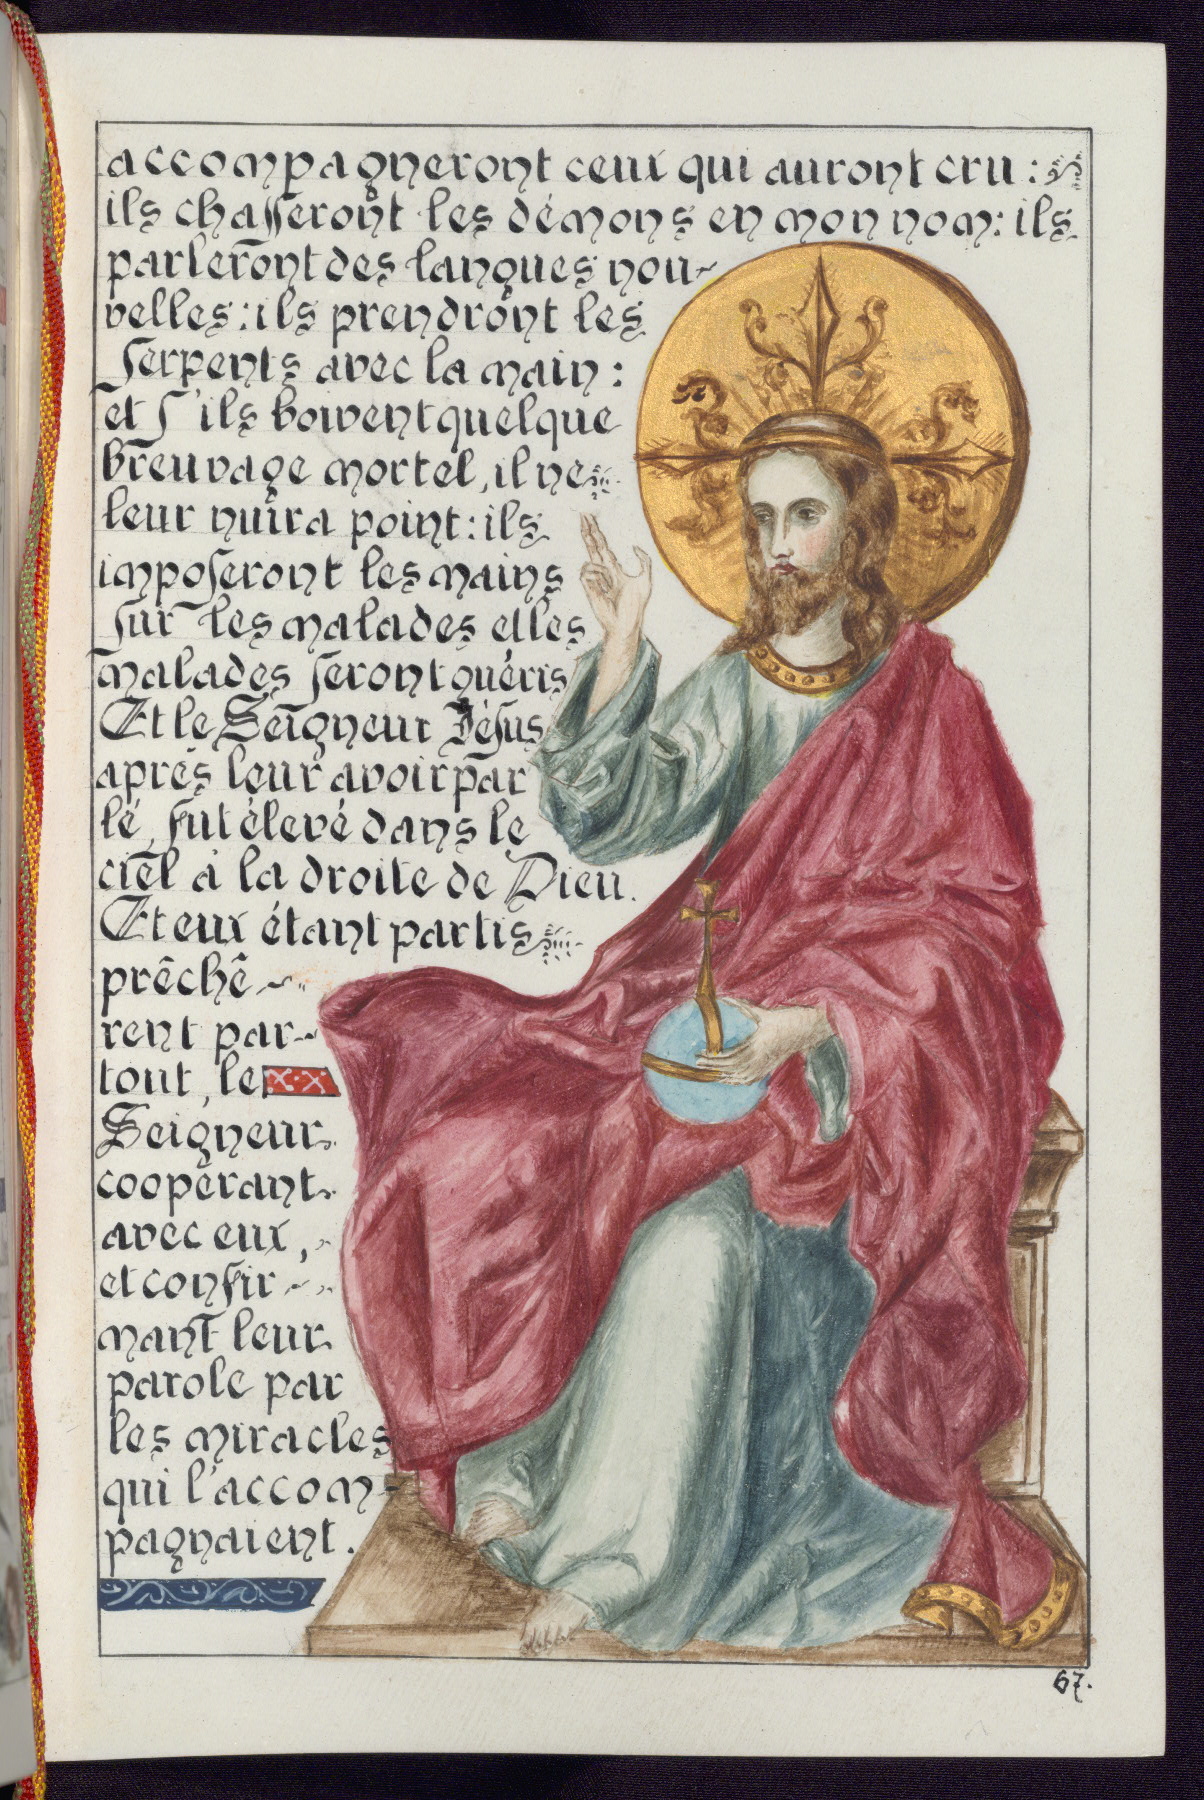 accompagneront ceux qui auront cru :
ils chaſſeront les démons en mon nom: ils
parleront des langues nou~
velles: ils prendront les
ſerpents avec la main :
et ſ'ils boivent quelque
breuvage mortel, il ne
leur nuira point: ils
impoſeront les mains
ſur les malades elles
malades ſeront guéris
Et le Seigneur Jéſus
après leur avoir par
lé, fut élevé dans le
ciel à la droite de Dieu.
Et eux étant partis
prêchê~
rent par~
tout, le
Seigneur
coopérant
avec eux,
et confir~
mant leur
parole par
les miracles
qui l'accom-
pagnaient.
67.